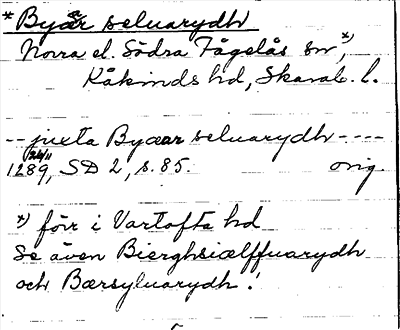 * Byaar seluarydh
Norra el. Södra Fågelås sn *)
Kåkinds hd, Skarab. l.
-- juxta Byaar seluarydh ----
1289 24/11, SD 2, s. 85. orig.
*) förr i Vartofta hd
Se även Bierghsiælffuarydh
och Bærsyluarydh!